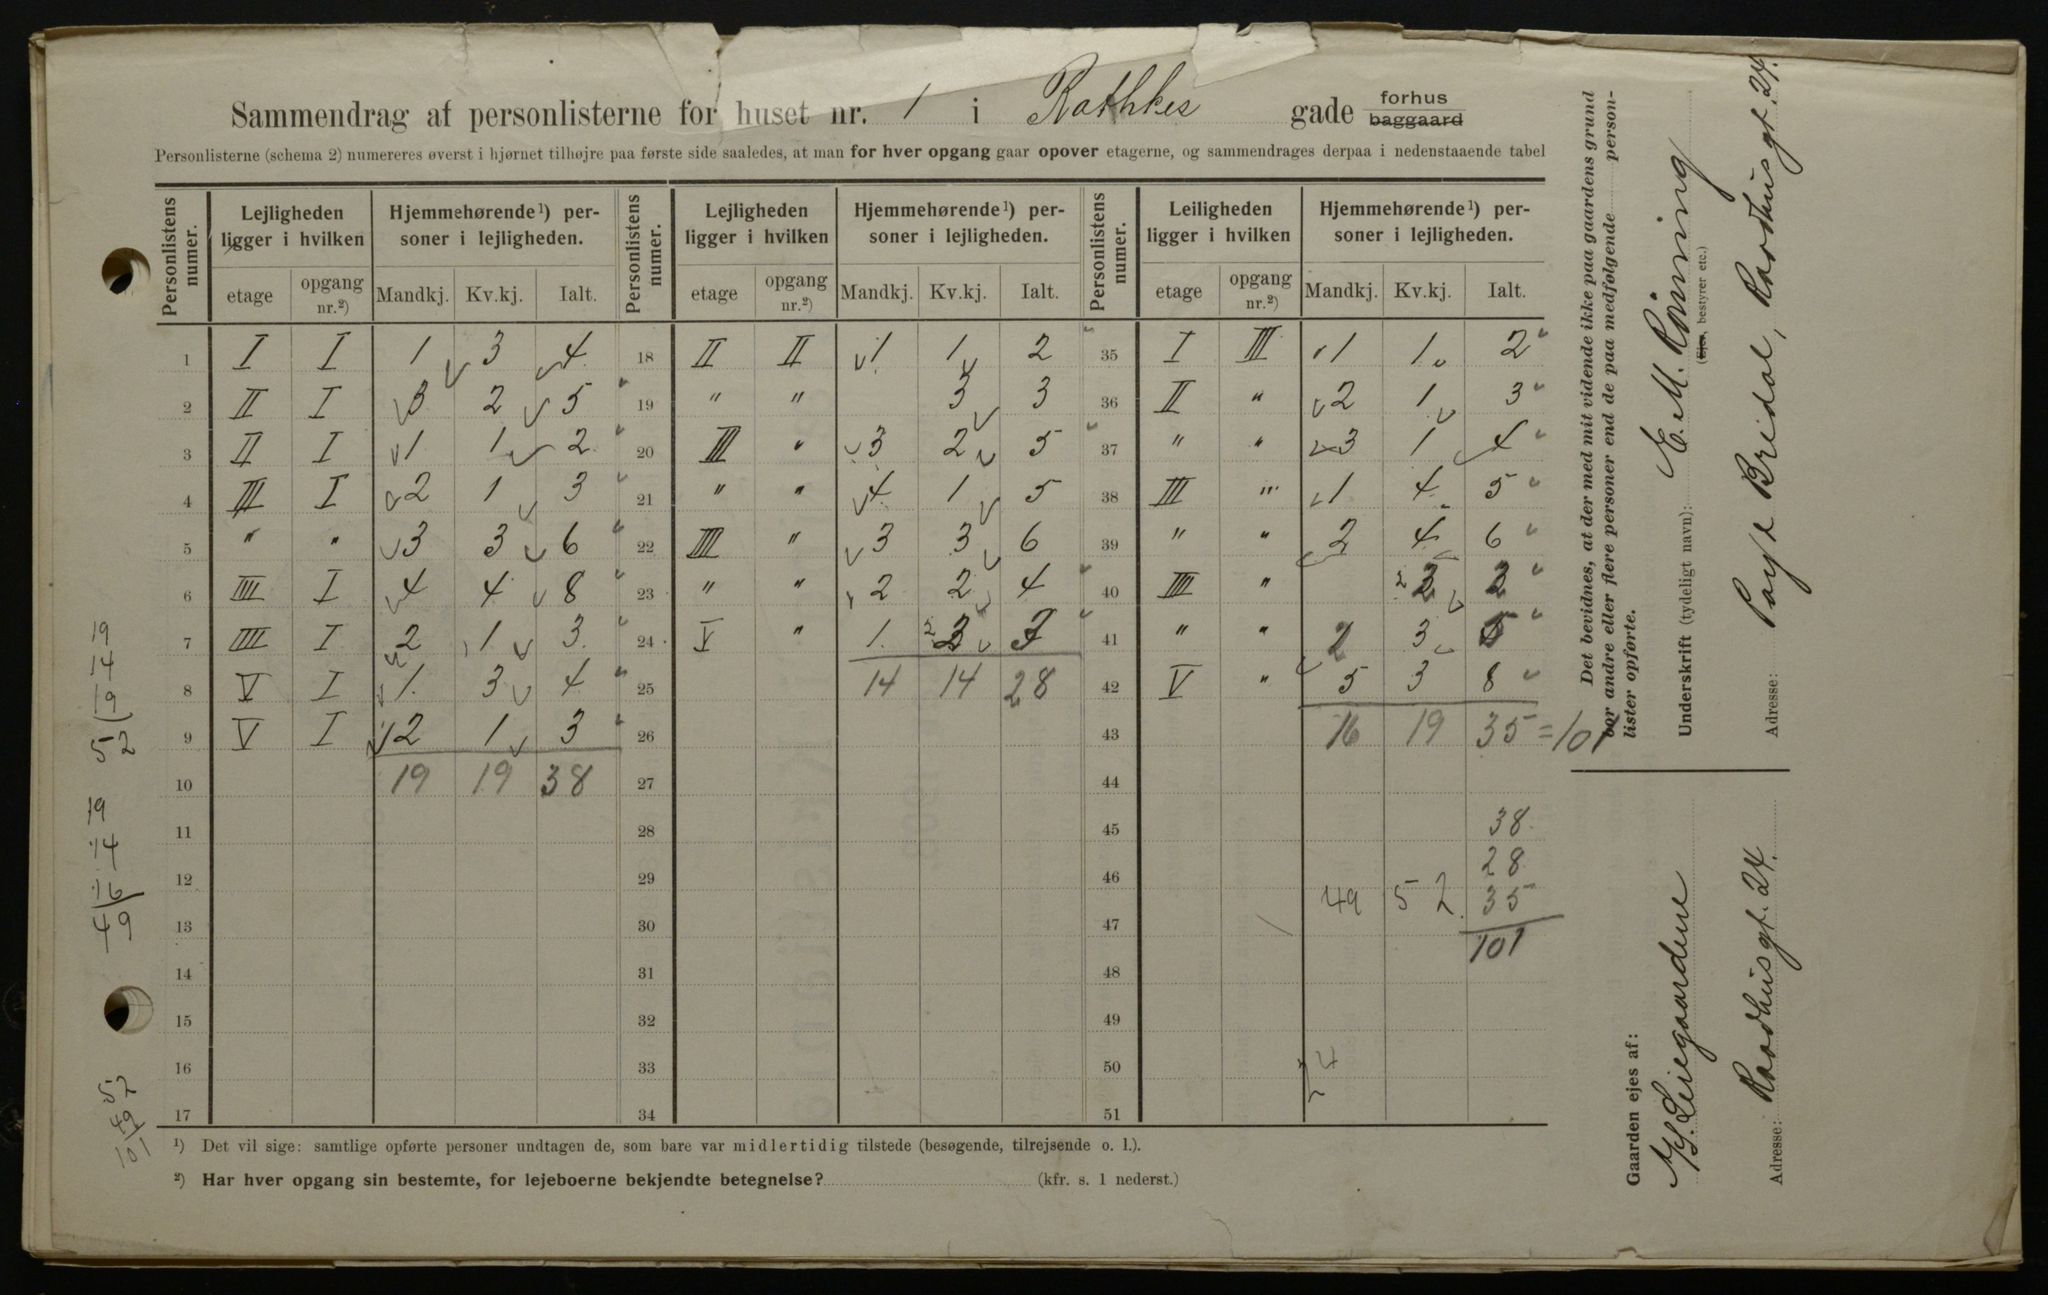 Sammendrag af personlisterne for huset nr. 1 i Rathkes gade forhus baggaard
Personlisterne (schema 2) numereres øverst i hjørnet tilhøjre paa første side saaledes, at man for hver opgang gaar opover etagerne, og sammendrages derpaa i nedenstaaende tabel
Personlistens numer. Lejligheden ligger i hvilken Hjemmehørende ¹) personer i lejligheden. Personlistens numer. Lejligheden ligger i hvilken Hjemmehørende ¹) personer i lejligheden. Personlistens numer. Leiligheden ligger i hvilken Hjemmehørende ¹) personer i lejligheden.
etage opgang nr.²) Mandkj. Kv.kj. Ialt. etage opgang nr.²) Mandkj. Kv.kj. Ialt. etage opgang nr.²) Mandkj. Kv.kj. Ialt.
1 I I 1 3 4 18 II II 1 1 2 35 I III 1 1 2
2 II I 3 2 5 19 " " 3 3 36 II " 2 1 3
3 II I 1 1 2 20 III " 3 2 5 37 " " 3 1 4
4 III I 2 1 3 21 " " 4 1 5 38 III " 1 4 5
5 " " 3 3 6 22 IIII " 3 3 6 39 " " 2 4 6
6 IIII I 4 4 8 23 " " 2 2 4 40 IIII " 2 2
7 IIII I 2 1 3 24 V " 1 2 3 41 " " 2 3 5
8 V I 1 3 4 25 14 14 28 42 V " 5 3 8
9 V I 2 1 3 26 43 16 19 35 = 101
10 19 19 38 27 44
11 28 45 38
28
12 29 46 49 52 35
13 30 47 101
14 31 48
15 32 49
16 33 50 4
17 34 51
19
14
19
52
19
14
16
49
52
49
101
¹) Det vil sige: samtlige opførte personer undtagen de, som bare var midlertidig tilstede (besøgende, tilrejsende o. l.).
²) Har hver opgang sin bestemte, for lejeboerne bekjendte betegnelse? (kfr. s. 1 nederst.)
Det bevidnes, at der med mit vidende ikke paa gaardens grund
bor andre eller flere personer end de paa medfølgende person-
lister opførte.
Underskrift (tydeligt navn): E. M. Rønning
(Ejer, bestyrer etc.)
Adresse: Bridal, Raadhusgt. 24.
Gaarden ejes af:
A/S. Leiegaardene
Adresse: Raadhusgt. 24.